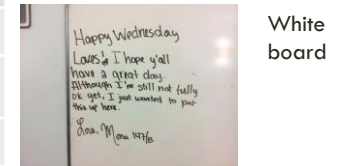 Happy Wednesday
Loves! I hope y'all
have a great day.
Although I'm still not fully
ok yet, I just wanted to put
this up here.
Love, Mona
White
board